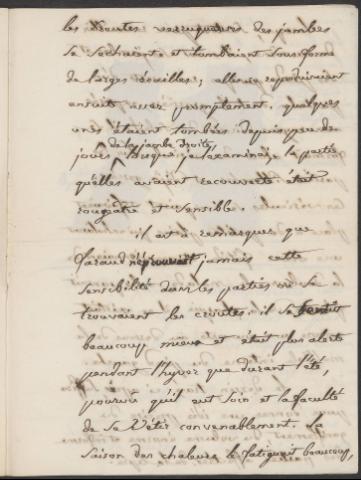 les croutes verruqueuses des jambes
se sechaient et tombaient sous forme
de larges écailles, elles se reproduisaient
ensuite assez promptement. quelques
unes étaient tombées depuis peu de
jours de la jambe droite, lorsque je l'examinai, la partie
qu'elles avaient recouverte était
rougeatre et sensible.
il est à remarquer que
n'éprouvait jamais cette
sensibilité dans les parties où se
trouvaient les croutes; il se sentait
beaucoup mieux et était plus alerte
pendant l'hyver que durant l'été,
pourvu qu'il eut soin et la faculté
de se vétir convenablement. La
saison des chaleurs le fatiguait beaucoup,